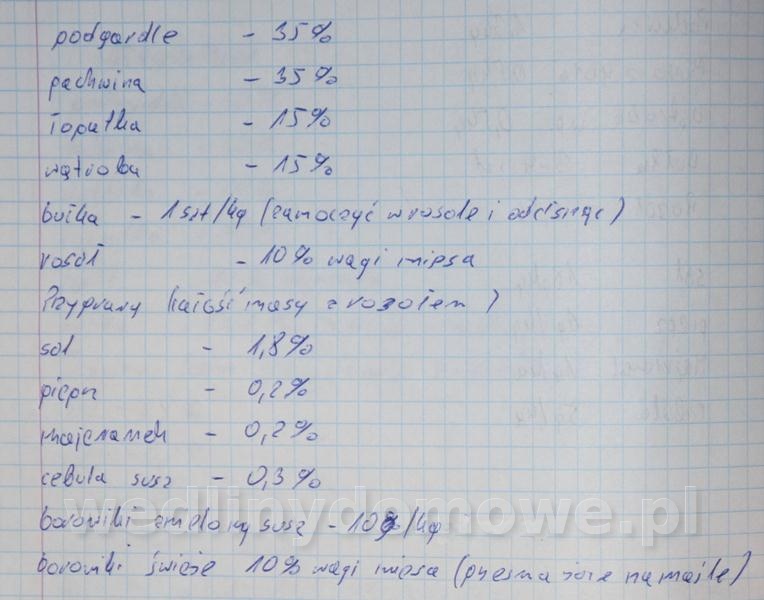 podgardle - 35%
pachwina - 35%
łopatka - 15%
wątroba - 15%
bułka - 1szt/kg (zamoczyć w rosole i odcisnąć)
rosół - 10% wagi mięsa
Przyprawy (całość masy z rosołem)
sól - 1,8%
pieprz - 0,2%
majeranek - 0,2%
cebula susz - 0,3%
borowiki zmielony susz - 10g/kg
borowiki świeże 10% wagi mięsa (przesmażone na maśle)
wedlinydomowe.pl